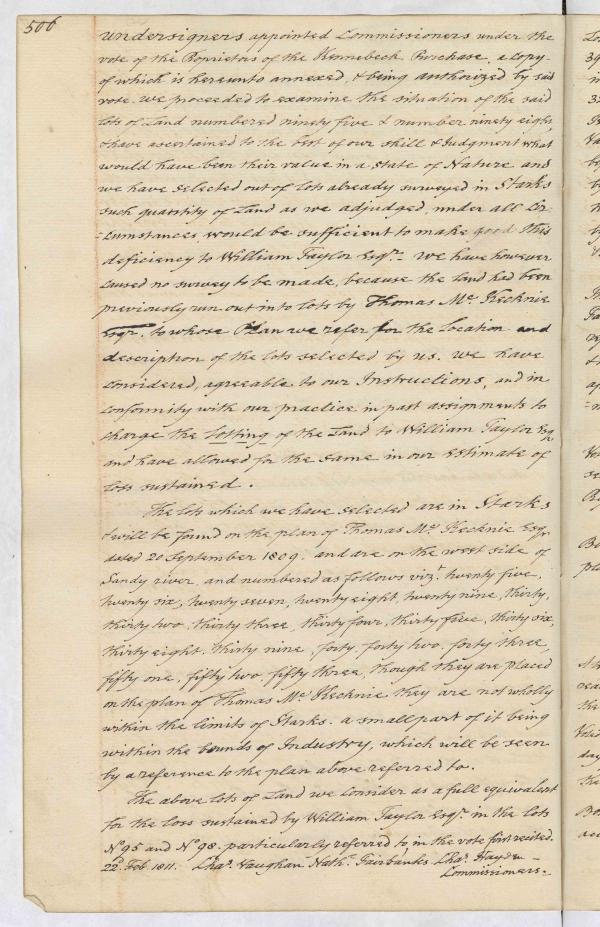 506
undersigners appointed Commissioners under the
vote of the Proprietors of the Kennebeck Purchase, a copy
of which is hereunto annexed, & being authorized by said
vote. we proceeded to examine the situation of the said
lots of Land numbered ninety five & number ninety eight,
& have ascertained to the best of our skill & Judgment what
would have been their value in a state of Nature and
we have selected out of lots already surveyed in Starks
such quantity of Land as we adjudged, under all Cir
=cumstances, would be sufficient to make good this
deficiency to William Taylor Esqr. we have however
caused no survey to be made, because the land had been
previously run out into lots by Thomas Mc. Kecknie
Esqr. to whose Plan we refer for the location and
description of the lots selected by us. we have
considered, agreeable to our Instructions, and in
conformity with our practice in past assignments to
charge the lotting of the Land to William Taylor Esqr
and have allowed for the same in our estimate of
loss sustained.
The lots which we have selected are in Starks
& will be found on the plan of Thomas Mc. Kecknie Esqr
dated 20 September 1809. and are on the west side of
Sandy river, and numbered as follows vizt. twenty five,
twenty six, twenty seven, twenty eight, twenty nine, thirty,
thirty two, thirty three, thirty four, thirty five, thirty six,
thirty eight. thirty nine, forty, forty two. forty three,
fifty one, fifty two, fifty three, though they are placed
on the plan of Thomas Mc. Kecknie they are not wholly
within the limits of Starks. a small part of it being
within the bounds of Industry, which will be seen
by a reference to the plan above referred to.
The above lots of Land we consider as a full equivalent
for the loss sustained by William Taylor Esqr. in the lots
No 95 and No 98. particularly referred to, in the vote first recited.
22d. Feb. 1811. Chas. Vaughan Nathl. Fairbanks Chas. Hayden
Commissioners.